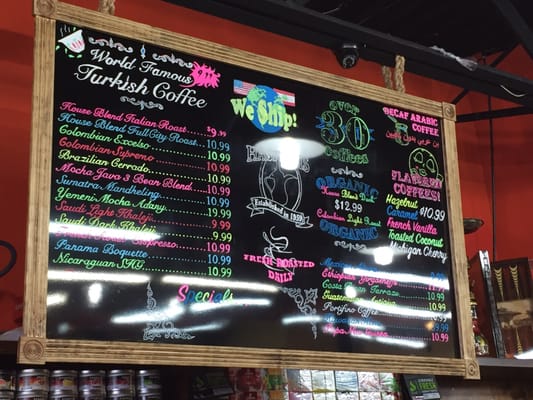 World Famous
Turkish Coffee
House Blend Italian Roast $9.99
House Blend Full City Roast 10.99
Colombian Excelso 10.99
Colombian Supremo 10.99
Brazilian Cerrado 10.99
Mocha Java 3 Bean Blend 10.99
Sumatra Mandheling 10.99
Yemeni Mocha Adany 19.99
Saudi Light Khaleeji 9.99
Saudi Dark Khaleeji 9.99
Espresso 10.99
Panama Boquette 10.99
Nicaraguan SHG 10.99
Specials
We Ship!
Established in 1959
FRESH ROASTED
DAILY
over
30
coffees
ORGANIC
House Blend Dark
$12.99
Colombian Light Roast
ORGANIC
Ethiopian 10.99
Costa 10.99
10.99
Portofino Coffee 10.99
10.99
DECAF ARABIC
COFFEE
FLAVORED
COFFEES!
Hazelnut
Caramel $10.99
French Vanilla
Toasted Coconut
Michigan Cherry